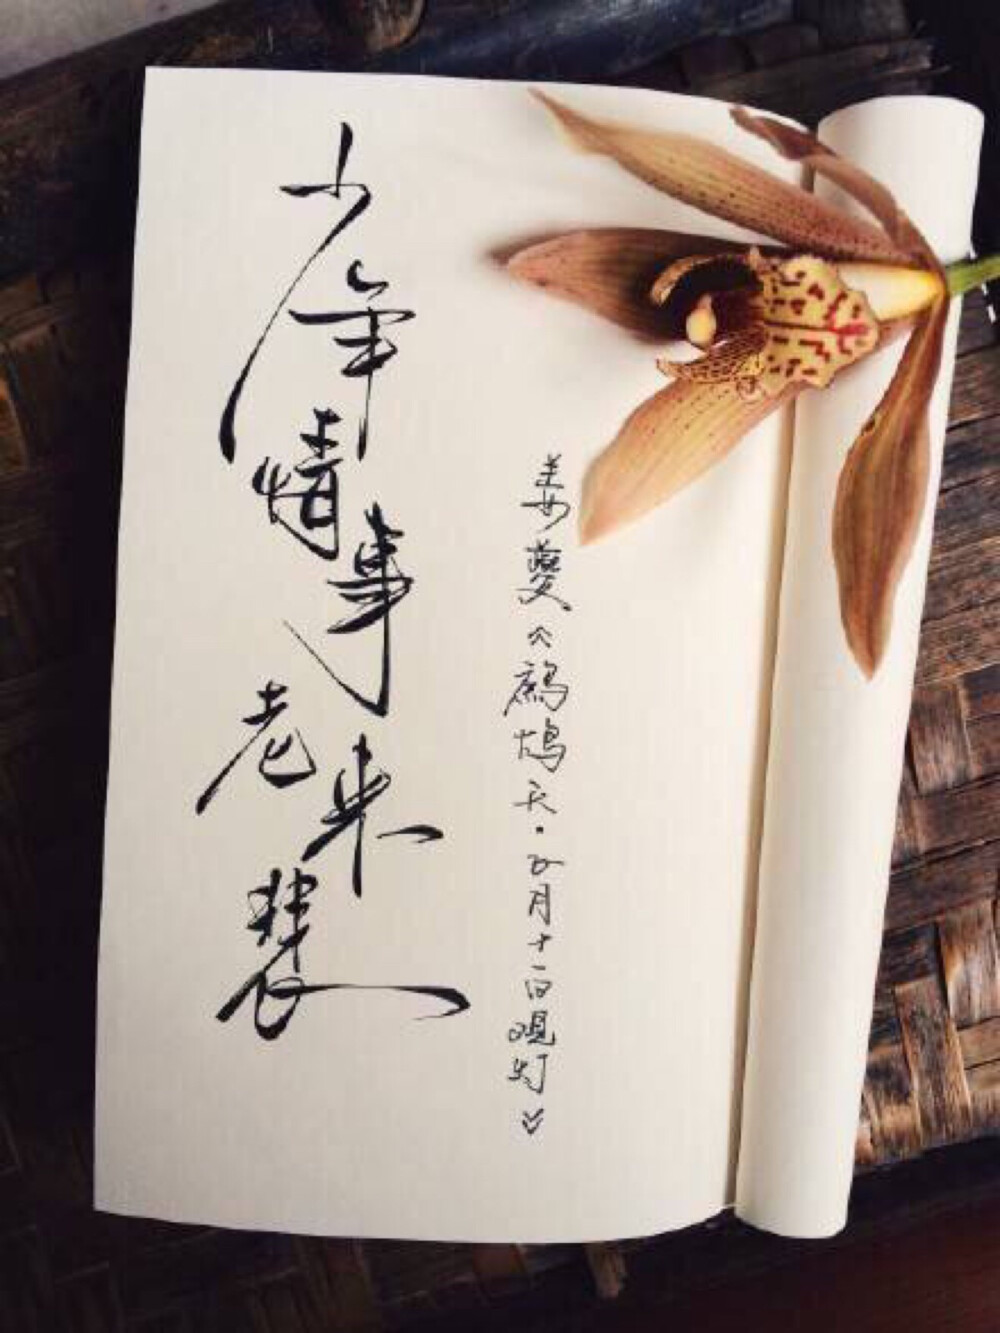 少年情事老来裴
姜夔《鷓鴣天·正月十一日观灯》